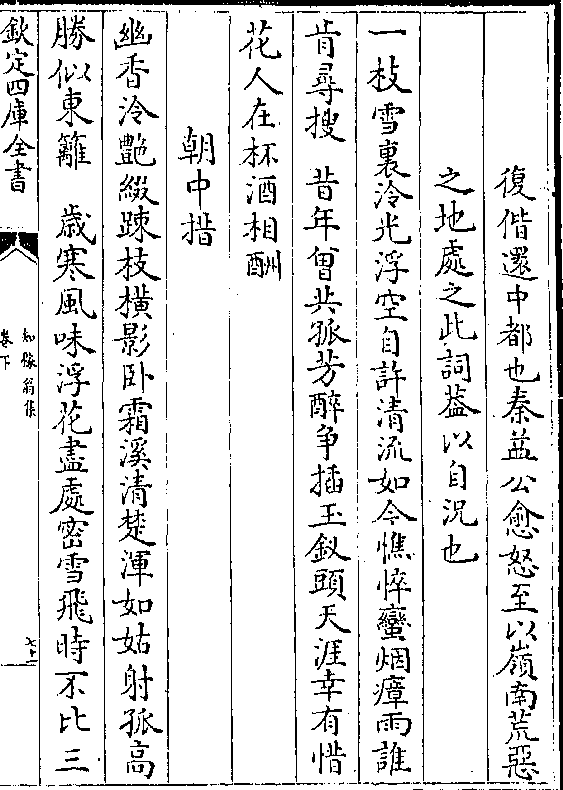 復偕還中都也秦益公愈怒至以嶺南荒惡
之地處之此詞葢以自況也
一枝雪裏泠光浮空自許清流如今憔悴蠻烟瘴雨誰
肯尋搜　昔年曾共孤芳醉争插玉釵頭天涯幸有惜
花人在杯酒相酬
朝中措
幽香泠艷綴踈枝横影卧霜溪清楚渾如姑射孤高
勝似東籬　歳寒風味浮花盡處密雪飛時不比三
欽定四庫全書
知稼翁集
卷下